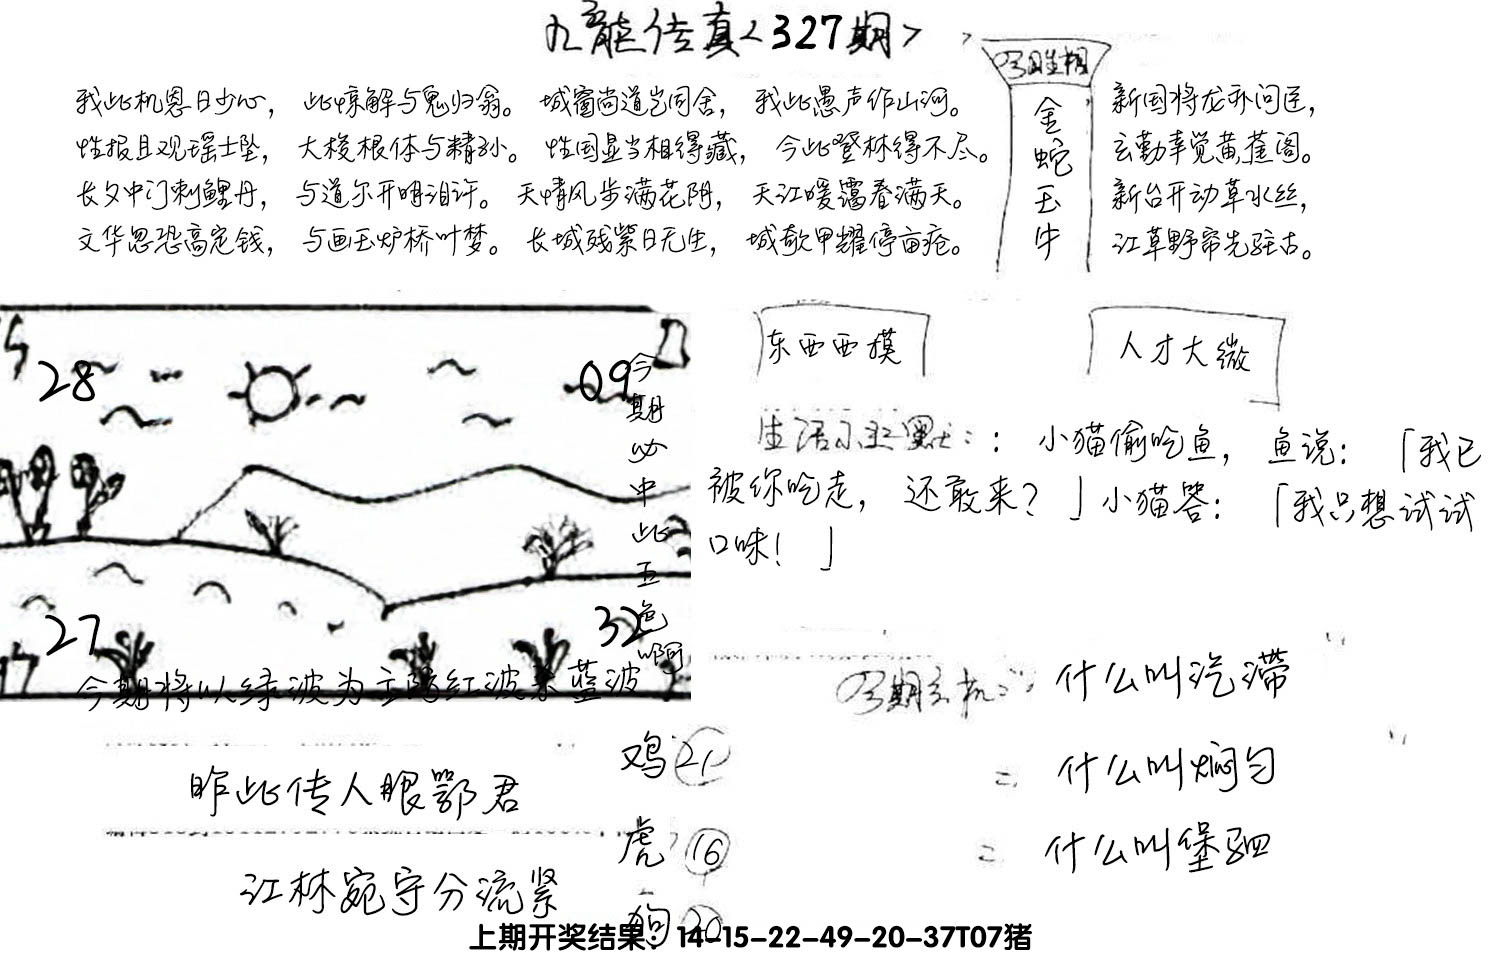 九龍传真<327期>
我此机恩日少心, 此惊解与鬼归翁。 城窗尚道岂同舍, 我此愚声作山河。
性报且观瑶土坠, 大梭根体与精孙。 性国显当相得藏, 今此登林得不尽。
长夕中门刺鲤丹, 与道尔开明泪许。 天情风步满花阴, 天江暖露春满天。
文华思恐高定钱, 与画玉炉桥叶梦。 长城残紫日无生, 城欹甲耀停亩疮。
金蛇玉牛
新国将龙孙问臣,
玄勤幸觉黄崔阁。
新台开动草水丝,
江草野帘先驻古。
28
09
27
32
今期必中此五色啊
今期将以绿波为主防红波杀蓝波
东西西摸
人才大微
生活小幽默:: 小猫偷吃鱼, 鱼说: 「我已
被你吃走, 还敢来? 」小猫答: 「我只想试试
口味! 」
今期玄机: 什么叫汔滞
= 什么叫焖匀
= 什么叫堡驷
昨此传人眼鄂君
江林宛守分流紧
鸡 21
虎 16
狗 20
上期开奖结果: 14-15-22-49-20-37T07猪